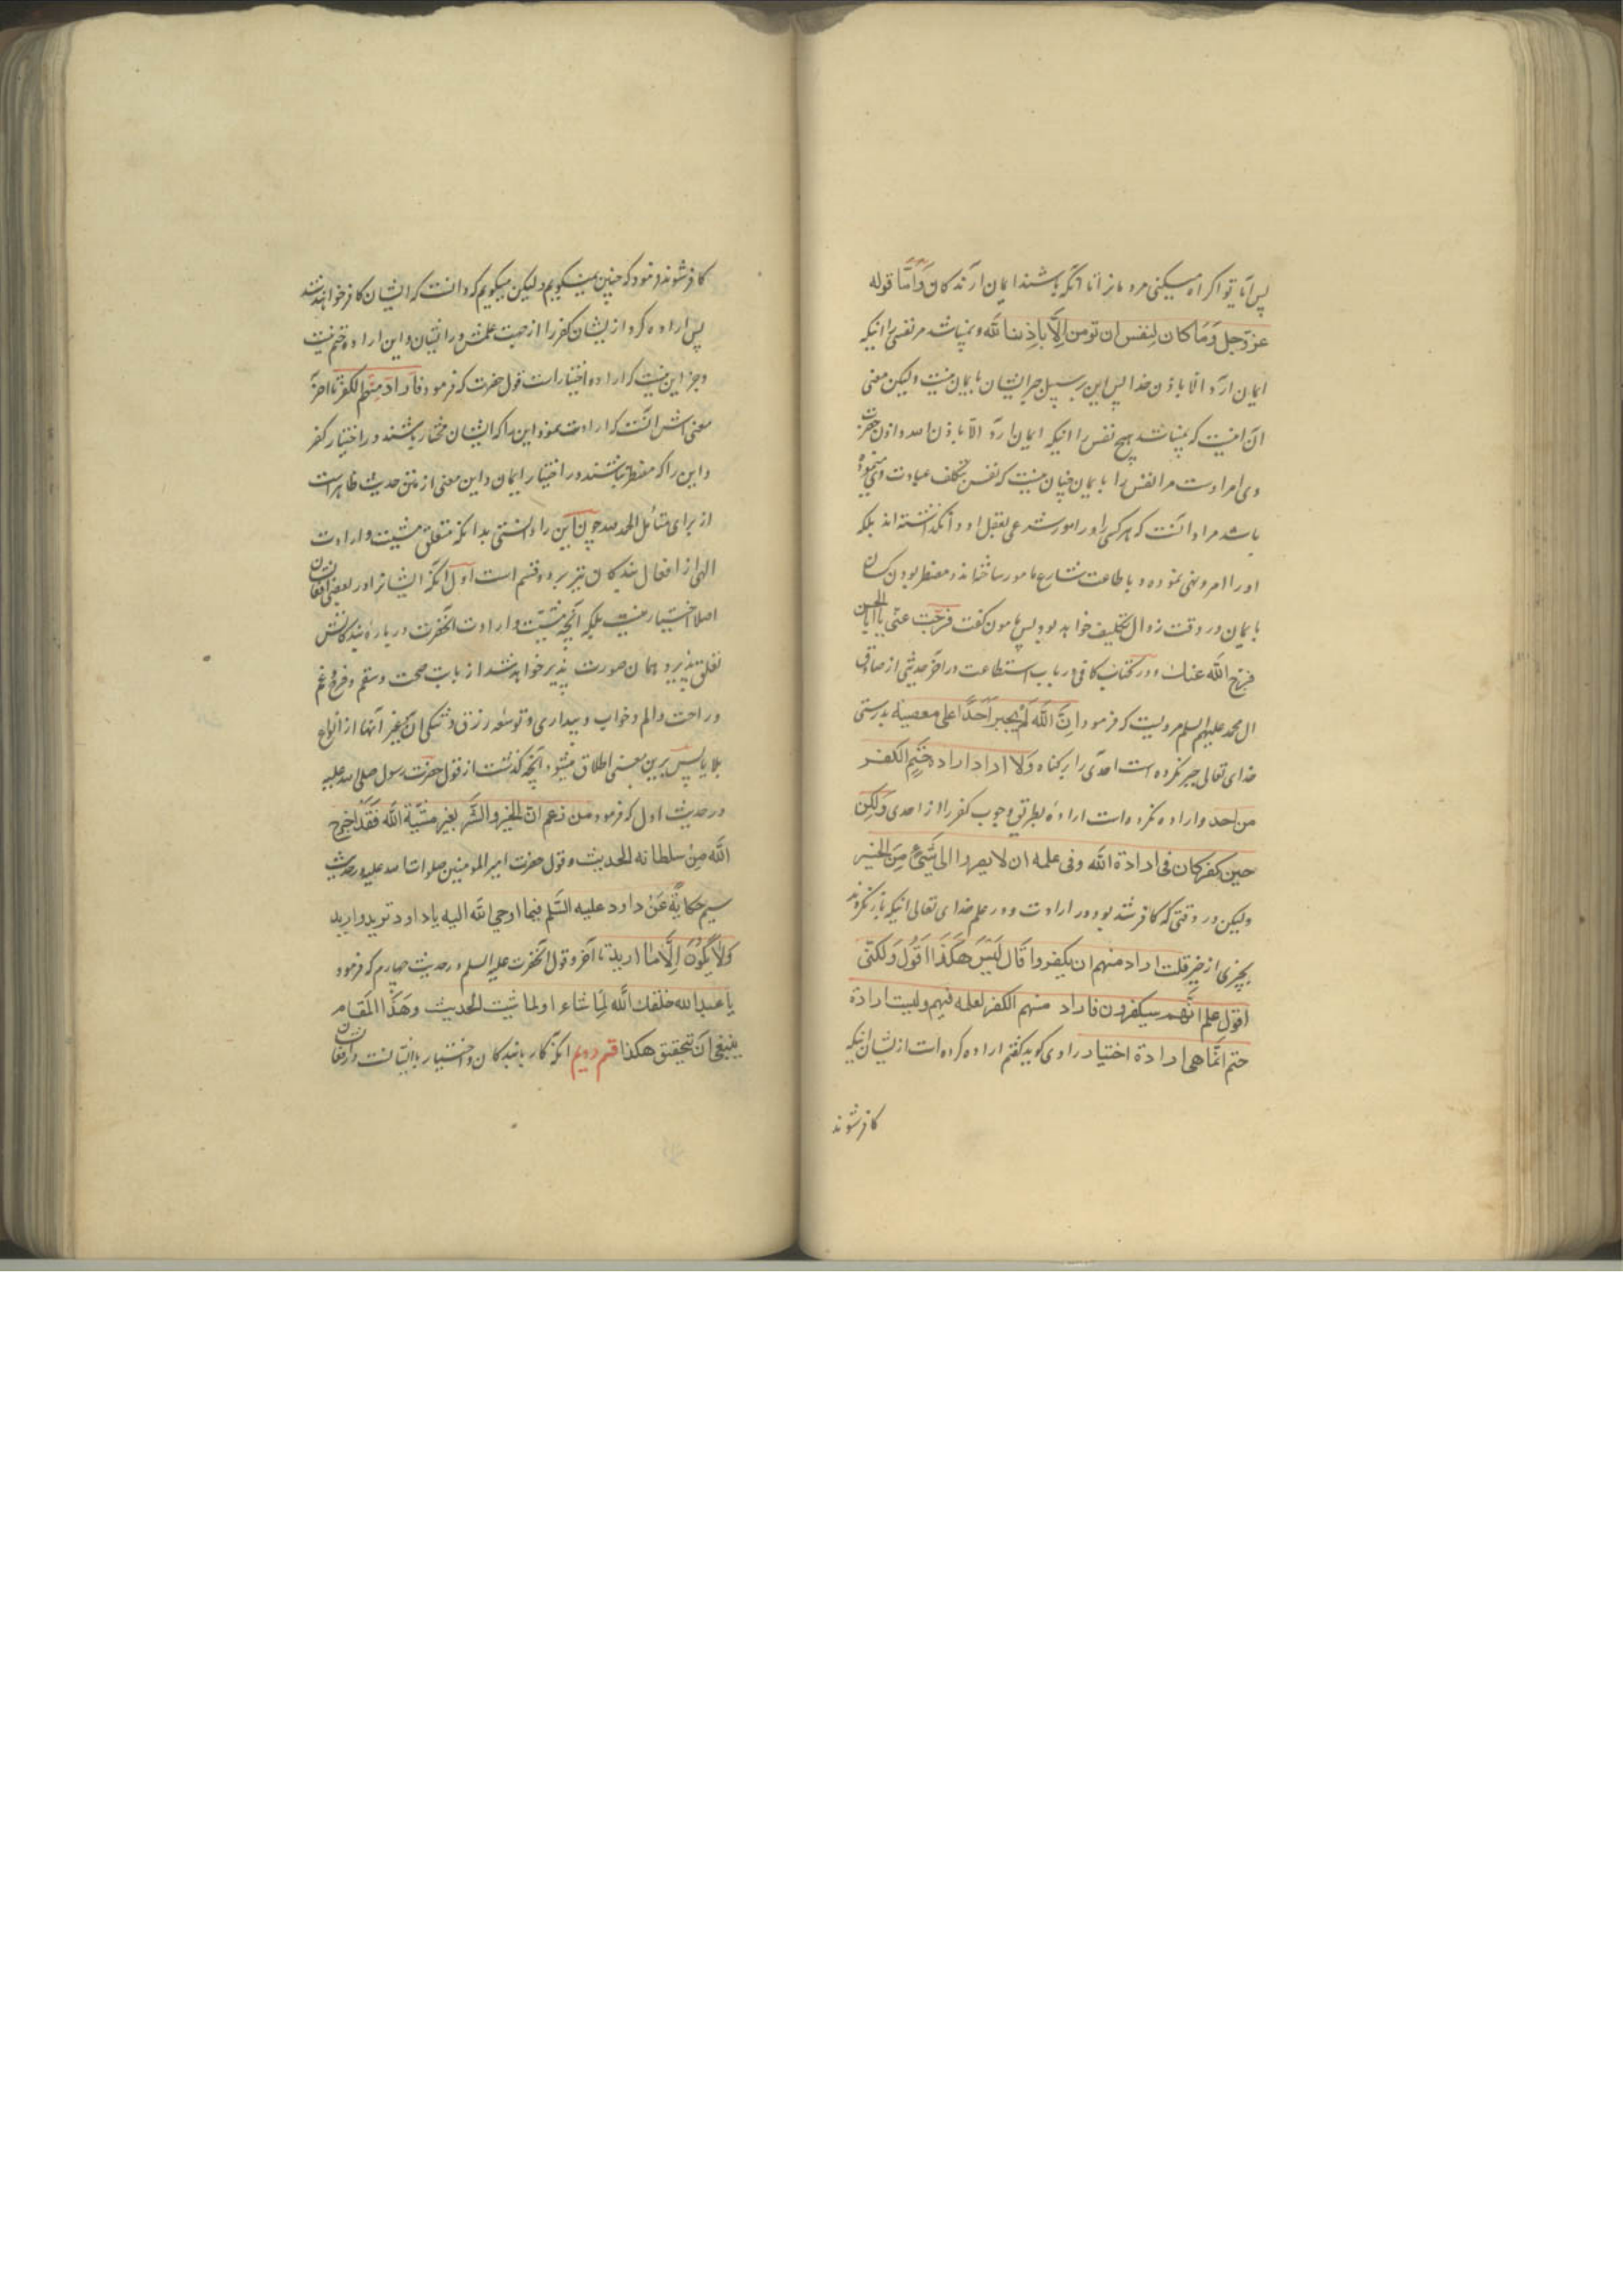 پس آیا تو اکراه میکنی مردمانرا تا آنکه باشند ایمان آرندکان وَاَمّا قوله
عزّ و جل وَمَا کان لِنفس ان تومن اِلّا باِذن الله و نمیباشد مر نفسی را اینکه
ایمان آرد الا باذن خدا پس این بر سبیل جبر ایشان بایمان نیست ولیکن معنی
آن اینست که نمیباشد هیچ نفس را اینکه ایمان آرد الا باذن الله و اذن حضرت
وی امر اوست مر نفس را بایمان چنان نیست که نفس تکلف عبادت وی ننموده
باشد مراد آنست که هر کسی را در امور شرعی بعقل او وانگذاشته‌اند بلکه
او را امر و نهی نموده و باطاعت شارع مامور ساخته‌اند و مضطر بودن کسان
بایمان در وقت زوال تکلیف خواهد بود پس مامون کفت فرجت عنی یا ابا الحسن
فرج الله عنك و در کتاب کافی در باب استطاعت در آخر حدیثی از صادق
ال محمد علیهم السلم مرویست که فرمود اِنَّ الله لَم یجبر اَحَدًا علی معصیة بدرستی
خدای تعالی جبر نکرده است احدی را بر کناه ولا اراد ارادة حتم الکفـر
من احد و اراده نکرده است ارادهٔ بطریق وجوب کفر را از احدی وَلکِن
حین کفر کان فی ارادة الله وفی علمه ان لا یصیروا الی شَیْءٍ مِنَ الخیـر
ولیکن در وقتی که کافر شد بود در ارادت و در علم خدای تعالی اینکه باز نکردند
بچیزی از خیر قلت اراد منهم ان یکفروا قَال لَیْسَ هکَذَا اَقُول وَلکنّی
اقول علم انّهم سیکفرون فاراد منهم الکفر لعلمه فیهم ولیست ارادة
حتم انّما هی ارادة اختیار راوی کوید کفتم اراده کرده است از ایشان اینکه
کافر شوند
کافر شوند فرمود که چنین نمیکویم ولیکن میکویم که دانست که ایشان کافر خواهند شد
پس اراده کرد از ایشان کفر را از جهت علمش در ایشان و این اراده حتم نیست
و جز این نیست که اراده اختیار است قول حضرت که فرمود فاَراد منهم الکفر تا آخر
معنی اش آنست که ارادت نمود این را که ایشان مختار باشند در اختیار کفر
و این را که مضطر نباشند در اختیار ایمان و این معنی از متن حدیث ظاهر است
از برای متامل الحمد لله چون این را دانستی بدانکه متعلق مشیت و ارادت
الهی از افعال بندکان نیز بر دو قسم است اول آنکه ایشانرا در بعضی افعال شان
اصلا اختیار نیست بلکه آنچه مشیّت و ارادت آنحضرت دربارهٔ بندکانش
تعلق پذیرد همان صورت پذیر خواهد شد از بابت صحت و سقم و فرح و غم
و راحت و الم و خواب و بیداری و توسعه رزق و تنکی آن و غیر آنها از انواع
بلایا پس برین معنی اطلاق میشود آنچه کذشت از قول حضرت رسول صلی الله علیه
در حدیث اول که فرمود مَن زعم انّ الخیر والشّر بغیر مشیّة الله فَقَد اَخرج
الله مِن سلطانه الحدیث و قول حضرت امیر المومنین صلوات الله علیه در حدیث
سیم حکایةً عَن داود علیه السّلم فیما اوحی الله الیه یا داود ترید وارید
ولا یَکُونُ اِلَّا ما ارید تا آخر و قول آنحضرت علیه السلم در حدیث چهارم که فرمود
یا عبد الله خلقك الله لِمَا شاء او لما شیت الحدیث وهَذا المَقـام
ینبغی ان تحقیق هکذا قسم دویم آنکه کار با بندکان و اختیار با ایشانست در افعال شان